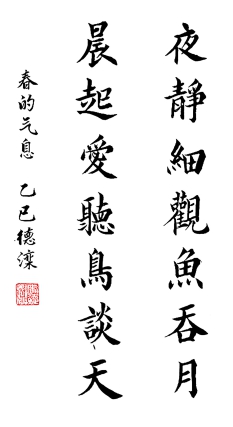 夜靜細觀魚吞月
晨起愛聽鳥談天
春的气息 乙巳德滦